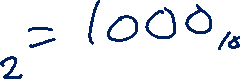 ₂ = 1000₁₀